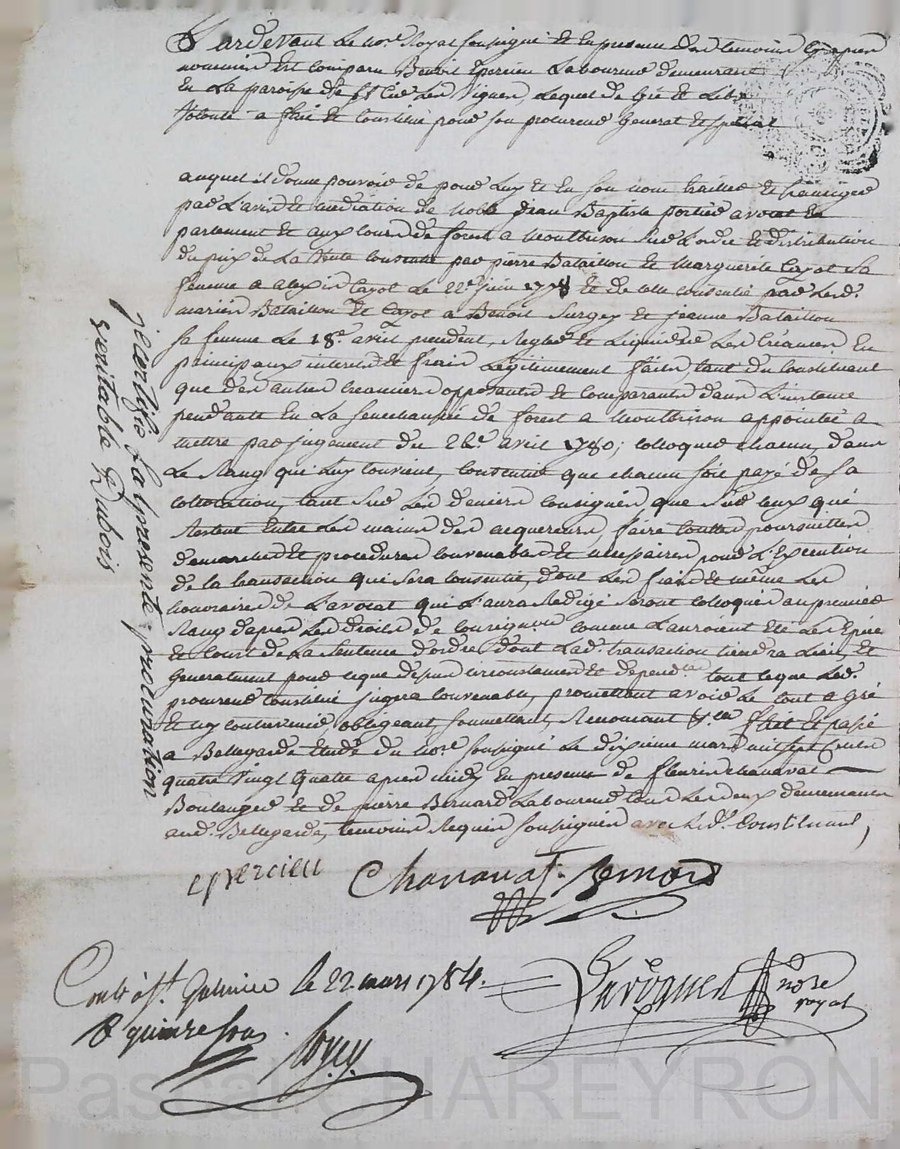 Pardevant le nore Royal soussigné et en presence des temoins cy apres
nommés est comparu Benoit Epercieu Laboureur demeurant
en la paroisse de st Cir les Vignes, lequel de gré et libre
volonté a fait et constitué pour son procureur general et special
auquel il donne pouvoir de pour luy et en son nom traiter et transiger
par l'avis et mediation de noble Jean Baptiste Portier avocat en
parlement et aux cours de forest a Montbrison sur l'ordre et distribution
du prix de la vente consentie par pierre Bataillon et Marguerite Cayot sa
femme a alexis Cayot le 22e juin 1778 et de celle consentie par lesd.
mariés Bataillon et Cayot a Benoit Surgey et jeanne Bataillon
sa femme le 18e avril precedent, Regler et Liquider les Creances en
principaux interets et frais legitimement faits, tant du constituant
que des autres Creanciers opposants et comparants dans l'instance
pendante en la senechaussée de forest a Montbrison appointée a
mettre par jugement du 26e avril 1780; colloquer chacun dans
le Rang qui luy convient, consentir que chacun soit payé de sa
collocation, tant sur les deniers consignés que sur ceux qui
Restent entre les mains des acquereurs, faire touttes poursuittes
demarches et procedures convenables et necessaires pour l'Execution
de la transaction qui sera consentie, dont les frais et même les
honoraires de l'avocat qui l'aura Redigé seront colloqués au premier
Rang d'apres les droits de consignation comme l'auroient été les Epices
et Coust de la sentence d'ordre dont lad. transaction tiendra lieu, et
generalement pour ce que dessus circonstances et dependces tout ce que led.
procureur constitué jugera convenable, promettant avoir le tout a gré
et n'y contrevenir obligeant, soumettant, Renonceant &ca fait et passé
a Bellegarde etude du nore soussigné le dixieme mars mil sept Cents
quatre vingt quatre apres midy en presence de fleuris chanavat
Boulanger et de pierre Bernard Laboureur tous les deux demeurants
aud. Bellegarde, temoins Requis soussignés avec led. Constituant,
je certifie la presente procuration
veritable Dubois
epercieu Chanavat. Bernard
Contrôl. st. Galmier le 22 mars 1784.
R quinze sous
nore
royal
Pascal CHAREYRON